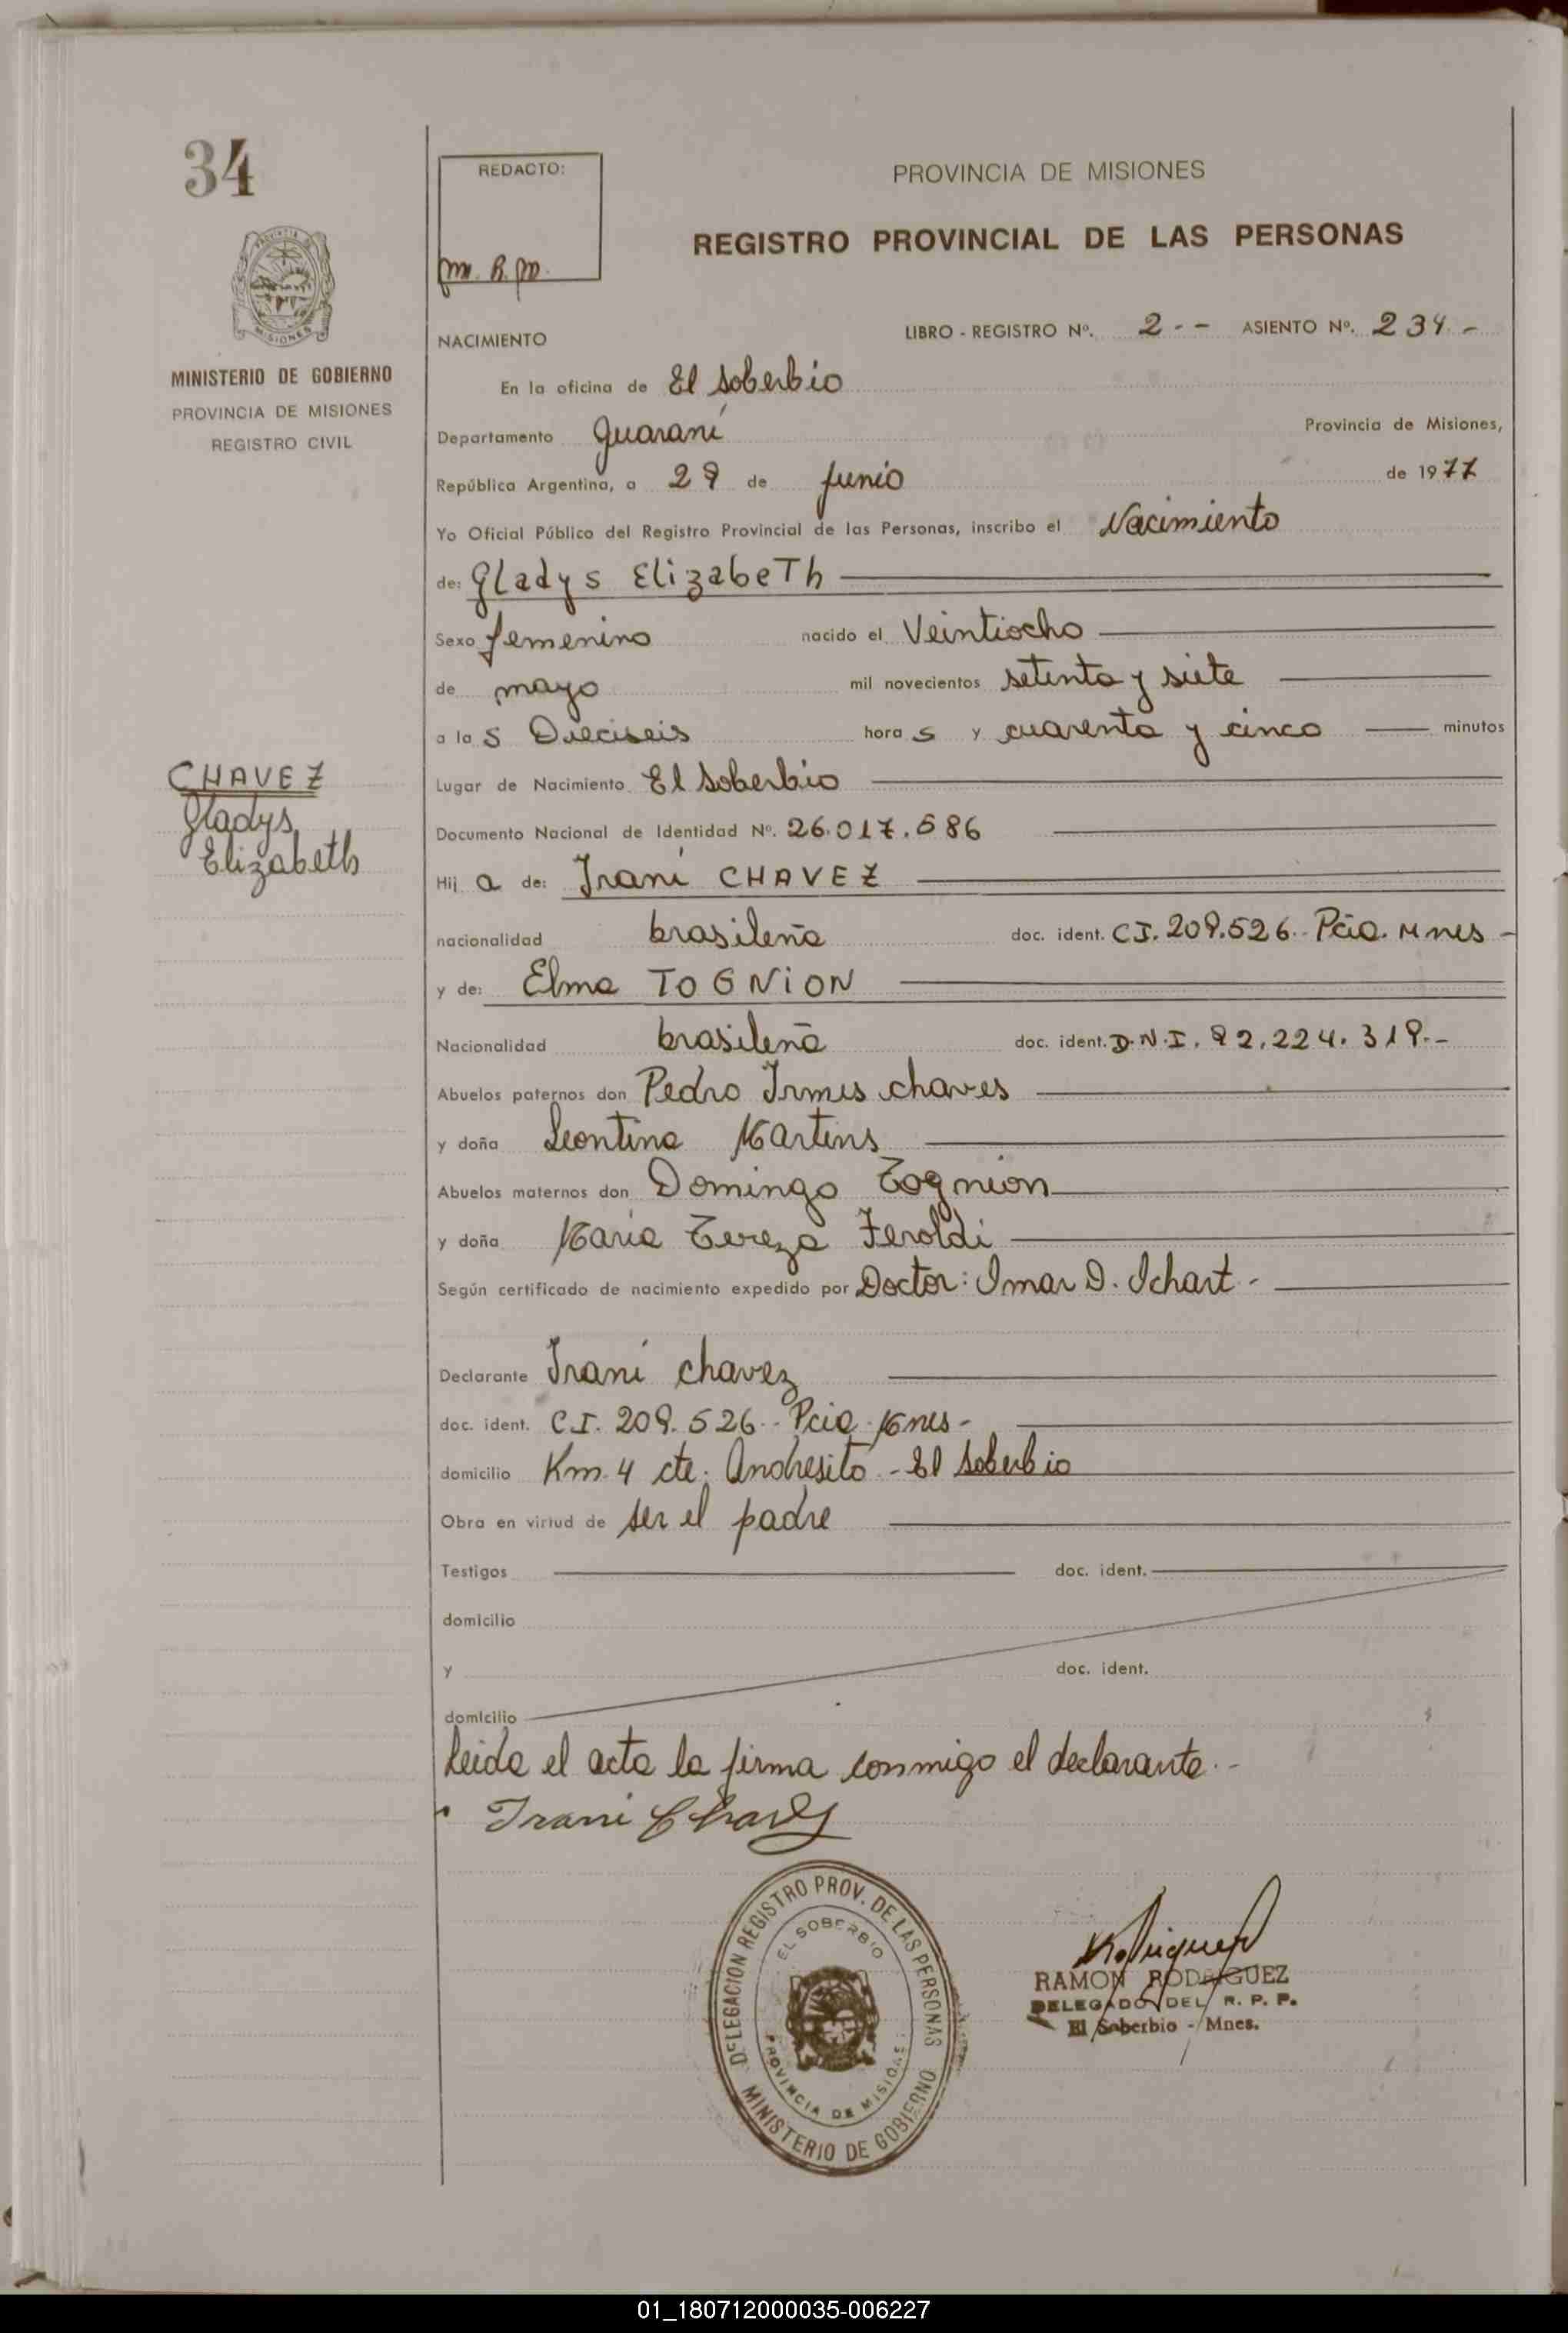 34
REDACTO:
m. R. m.
PROVINCIA DE MISIONES
REGISTRO PROVINCIAL DE LAS PERSONAS
MISIONES
MINISTERIO DE GOBIERNO
PROVINCIA DE MISIONES
REGISTRO CIVIL
NACIMIENTO LIBRO - REGISTRO Nº. 2-- ASIENTO Nº. 234.-
En la oficina de El Soberbio
Departamento Guaraní Provincia de Misiones,
República Argentina, a 29 de Junio de 1977
Yo Oficial Público del Registro Provincial de las Personas, inscribo el Nacimiento
de: Gladys Elizabeth
Sexo femenino nacido el Veintiocho
de mayo mil novecientos setenta y siete
a las Dieciseis horas y cuarenta y cinco minutos
Lugar de Nacimiento El Soberbio
Documento Nacional de Identidad Nº. 26.017.586
CHAVEZ
Gladys
Elizabeth
Hija de: Irani CHAVEZ
nacionalidad brasileña doc. ident. C.I. 209.526.- Pcia. Mnes -
y de: Elma TOGNION
Nacionalidad brasileña doc. ident. D.N.I. 92.224.319.-
Abuelos paternos don Pedro Irmes chaves
y doña Leontina Martins
Abuelos maternos don Domingo Tognion
y doña Maria Tereza Feroldi
Según certificado de nacimiento expedido por Doctor: Imar D. Ichart -
Declarante Irani chavez
doc. ident. C.I. 209.526.- Pcia. Mnes -
domicilio Km. 4 cte. Andresito - El Soberbio
Obra en virtud de ser el padre
Testigos doc. ident.
domicilio
y doc. ident.
domicilio
leida el acta la firma conmigo el declarante.-
Irani Chavez
DELEGACION REGISTRO PROV. DE LAS PERSONAS
EL SOBERBIO
PROVINCIA DE MISIONES
MINISTERIO DE GOBIERNO
Rodriguez
RAMON RODRIGUEZ
DELEGADO DEL R. P. P.
El Soberbio - Mnes.
01_180712000035-006227